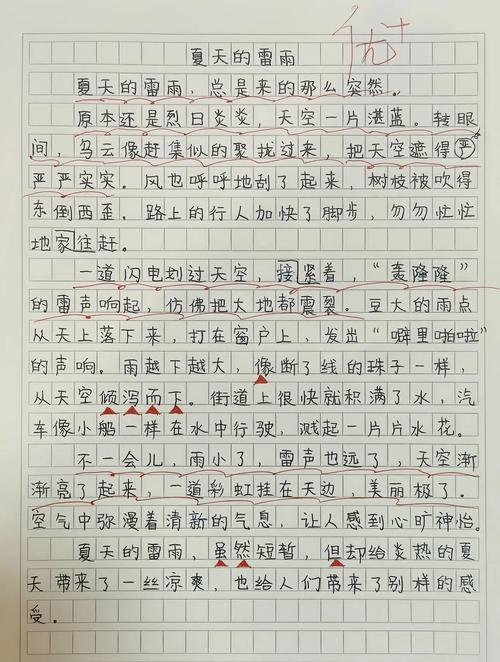 优+
夏天的雷雨
夏天的雷雨，总是来的那么突然。
原本还是烈日炎炎，天空一片湛蓝。转眼
间，乌云像赶集似的聚拢过来，把天空遮得严
严严实实。风也呼呼地刮了起来，树枝被吹得
东倒西歪。路上的行人加快了脚步，匆匆忙忙
地家往赶。
一道闪电划过天空，接紧着，“轰隆隆”
的雷声响起，仿佛把大地都震裂。豆大的雨点
从天上落下来，打在窗户上，发出“噼里啪啦”
的声响。雨越下越大，像断了线的珠子一样，
从天空倾泻而下。街道上很快就积满了水，汽
车像小船一样在水中行驶，溅起一片片水花。
不一会儿，雨小了，雷声也远了，天空渐
渐亮了起来，一道彩虹挂在天边，美丽极了。
空气中弥漫着清新的气息，让人感到心旷神怡。
夏天的雷雨，虽然短暂，但却给炎热的夏
天带来了一丝凉爽，也给人们带来了别样的感
受。